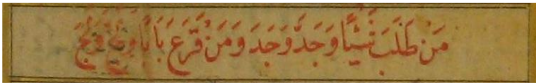 مَن طَلَبَ شَيْئًا وَجَدَّ وَجَدَ وَمَنْ قَرَعَ بَابًا وَلَجَّ وَلَجَ